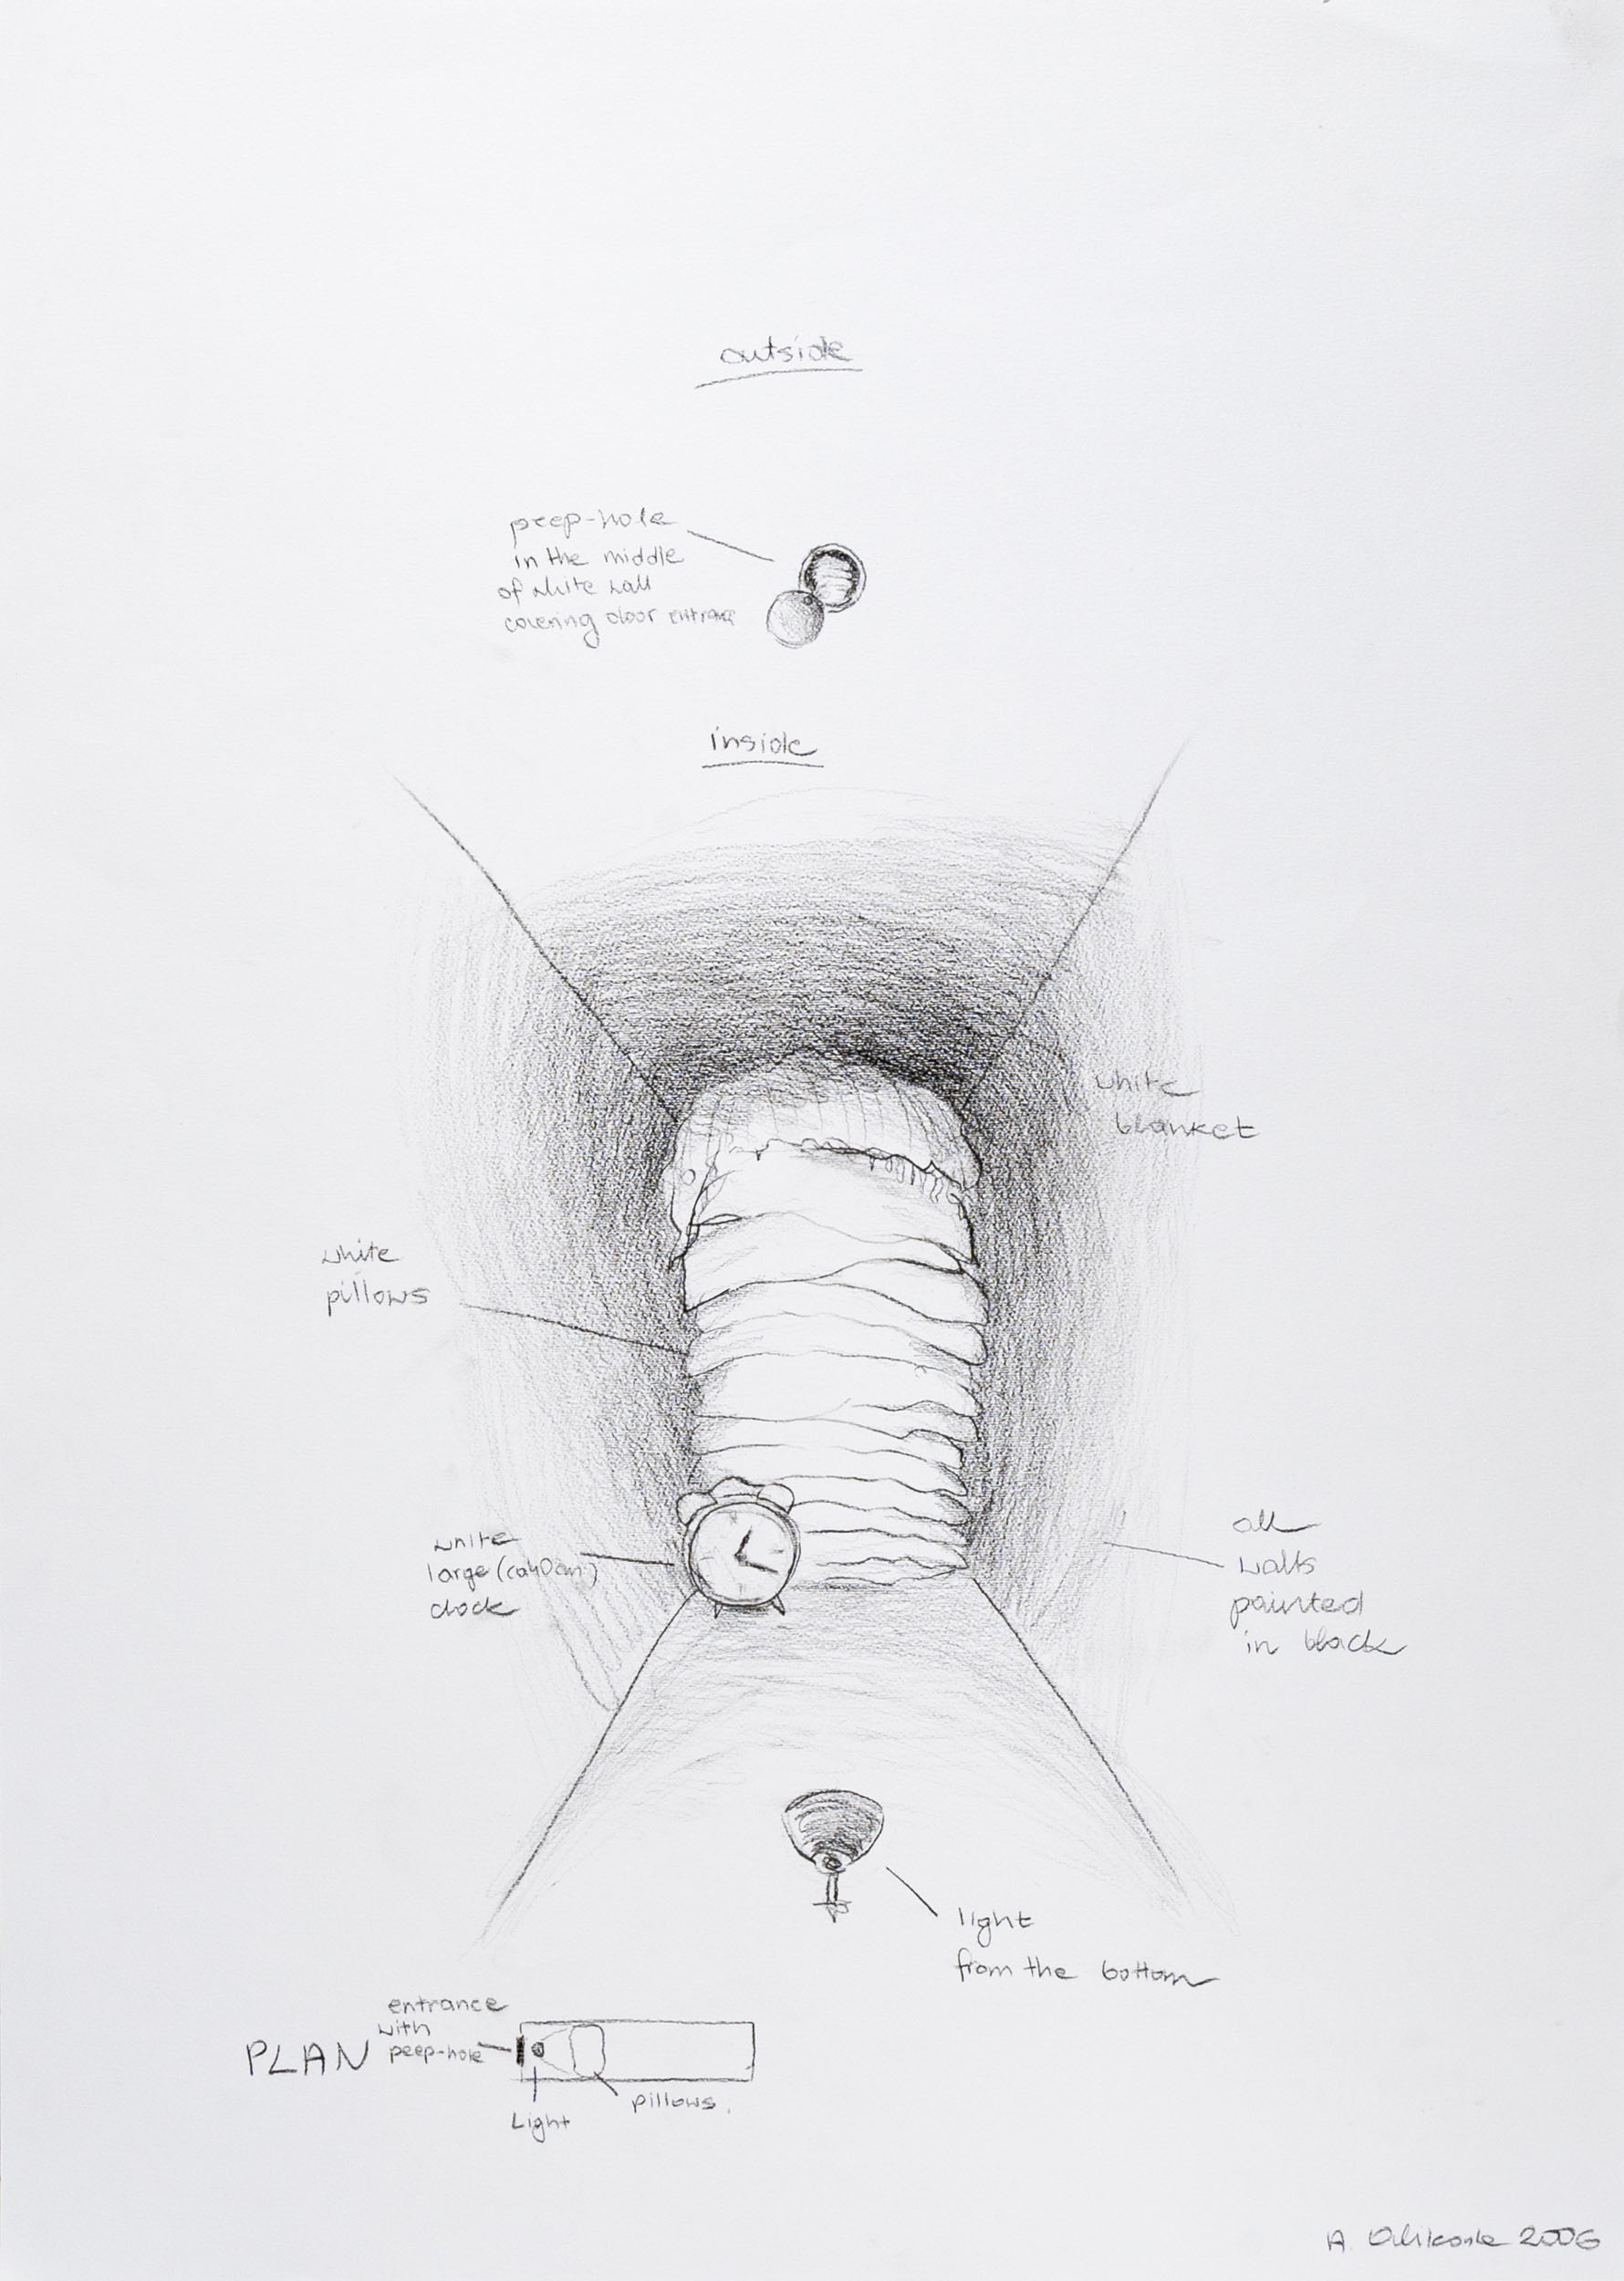 outside
peep-hole
in the middle
of white wall
covering door entrance
inside
white
blanket
white
pillows
white
large (ca40cm)
clock
all
walls
painted
in black
light
from the bottom
PLAN
entrance
with
peep-hole
Light
pillows.
A. 2006